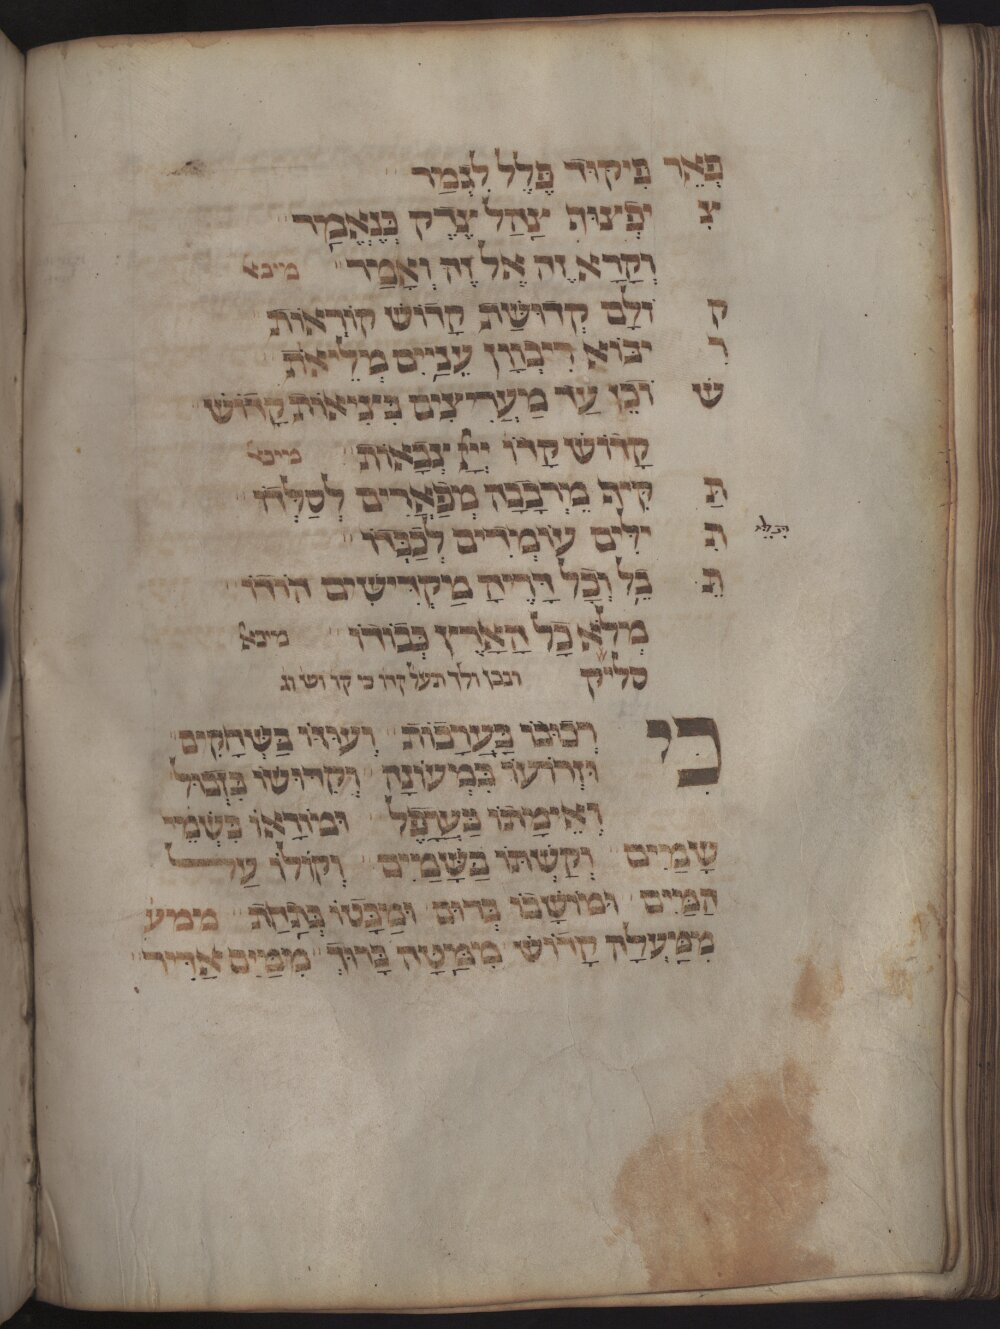 פְאֵר פִיקוּד פֶלֶל לִגְמַר
צִ יִפְצוּף צָהַל צֶדֶק כְּנֶאֱמָר
וְקָרָא זֶה אֶל זֶה וְאָמַר מיכא
ק וֹלָם קְדוּשַׁת קָדוֹשׁ קוֹרְאוֹת
רִ יבּוֹא רִיבְווָן עֵנַיִם מְלֵיאֹת
שׁ וֹכֵן עַד מַעֲרִיצִים בִּיצִיאוֹת קָדוֹשׁ
קָדוֹשׁ קָדוֹ יְיָ צְבָאוֹת מיכא
תַּ קִיף מֶרְכָּבָה מְפָאֲרִים לְסַלְּדוֹ
תִּ ילִּים עוֹמְדִים לְכַבְּדוֹ
תֵּ בֵל וְכָל דָּרֶיהָ מַקְדִּישִׁים הוֹדוֹ
מְלֹא כָל הָאָרֶץ כְּבוֹדוֹ מיכא
סליק ובכן ולך תעל קדו כ קדוש וג
כִּי רְכוּבוֹ בָּעֲרָבוֹת וְעוּזּוֹ בַּשְּׁחָקִים
וּזְרוֹעוֹ בִּמְעוֹנָה וְקִדּוּשׁוֹ בִּזְבוּל
וְאֵימָתוֹ בַּעֲרָפֶל וּמוֹרָאוֹ בִּשְׁמֵי
שָׁמַיִם וְקַשְׁתּוֹ בַּשָּׁמַיִם וְקוֹלוֹ עַל
הַמַּיִם וּמוֹשָׁבוֹ בְּרוּם וּמַבָּטוֹ בְּתַחַת ממע
מִמַּעְלָה קָדוֹשׁ מִמַּטָּה בָּרוּךְ מִמַּיִם אַדִּיר